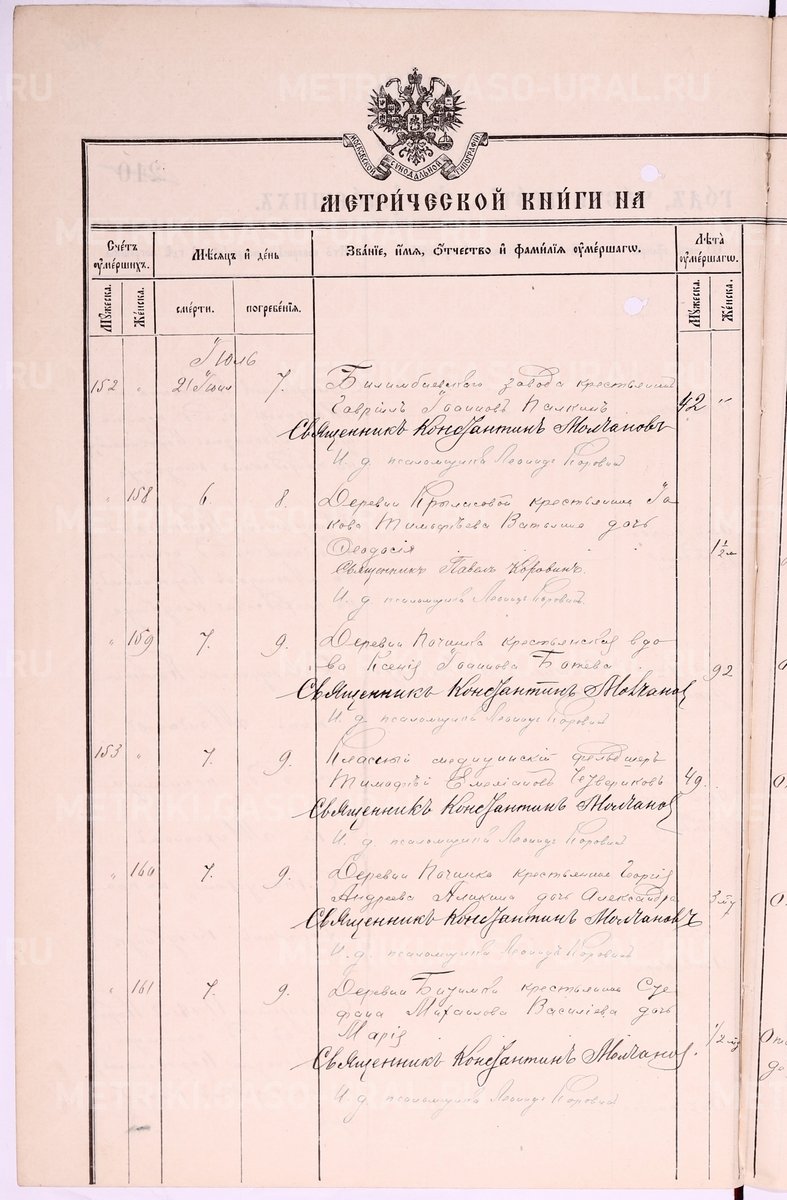 METRIKI.GASO-URAL.RU
МОСКОВСКОЙ СѴНОДАЛЬНОЙ ТИПОГРАФІИ
МЕТРИ́ЧЕСКОЙ КНИ́ГИ НА
Сче́тъ ᲂу҆ме́ршихъ.
Мѣ́сяцъ и҆ де́нь
Зва́нїе, и҆́мя, ѻ҆́тчество и҆ фами́лїя ᲂу҆ме́ршагѡ.
Лѣ́та ᲂу҆ме́ршагѡ.
Мꙋ́жеска.
Же́нска.
сме́рти.
погребе́нїя.
Мꙋ́жеска.
Же́нска.
Іюль
152 " 21 Іюля 7. Билимбаевскаго завода крестьянинъ
Гавріилъ Іоанновъ Пилкинъ 42 "
Священникъ Константинъ Молчановъ
И. д. псаломщика Леонидъ Коровинъ
" 158 6. 8. Деревни Крыласовой крестьянина Іа-
кова Тимофѣева Ватолина дочь
Ѳеодосія 1½ м
Священникъ Павелъ Коровинъ.
И. д. псаломщика Леонидъ Коровинъ
" 159 7. 9. Деревни Починка крестьянская вдо-
ва Ксенія Іоаннова Ботева 92
Священникъ Константинъ Молчановъ
И. д. псаломщика Леонидъ Коровинъ
153 " 7. 9. Классный медицинскій фельдшеръ
Тимофей Емеліановъ Четвериковъ 49.
Священникъ Константинъ Молчановъ
И. д. псаломщика Леонидъ Коровинъ
" 160 7. 9. Деревни Починка крестьянина Георгія
Андреева Аликина дочь Александра 3 м
Священникъ Константинъ Молчановъ
И. д. псаломщика Леонидъ Коровинъ
" 161 7. 9. Деревни Битимки крестьянина Сте-
фана Михаилова Василіева дочь
Марія 1/2
Священникъ Константинъ Молчановъ
И. д. псаломщика Леонидъ Коровинъ